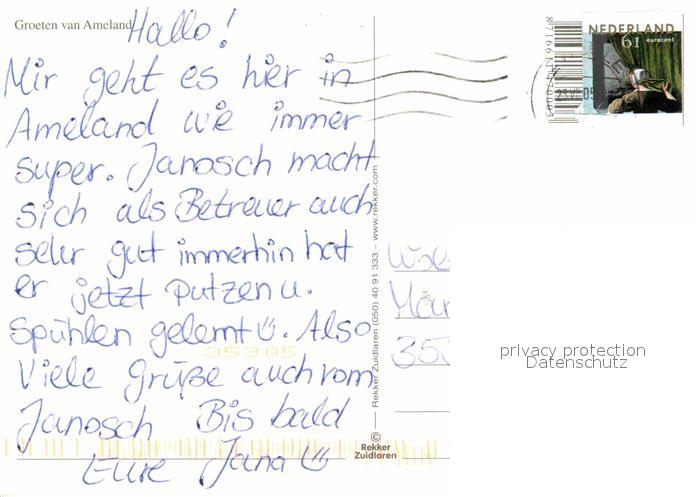 Groeten van Ameland
Hallo!
Mir geht es hier in
Ameland wie immer
super. Janosch macht
sich als Betreuer auch
sehr gut immerhin hat
er jetzt putzen u.
Spühlen gelernt. Also
Viele Grüße auch vom
Janosch Bis bald
Eure Jana
© Rekker Zuidlaren
Rekker Zuidlaren (050) 40 91 333 - www.rekker.com
NEDERLAND
61 eurocent
35305
353
privacy protection
Datenschutz